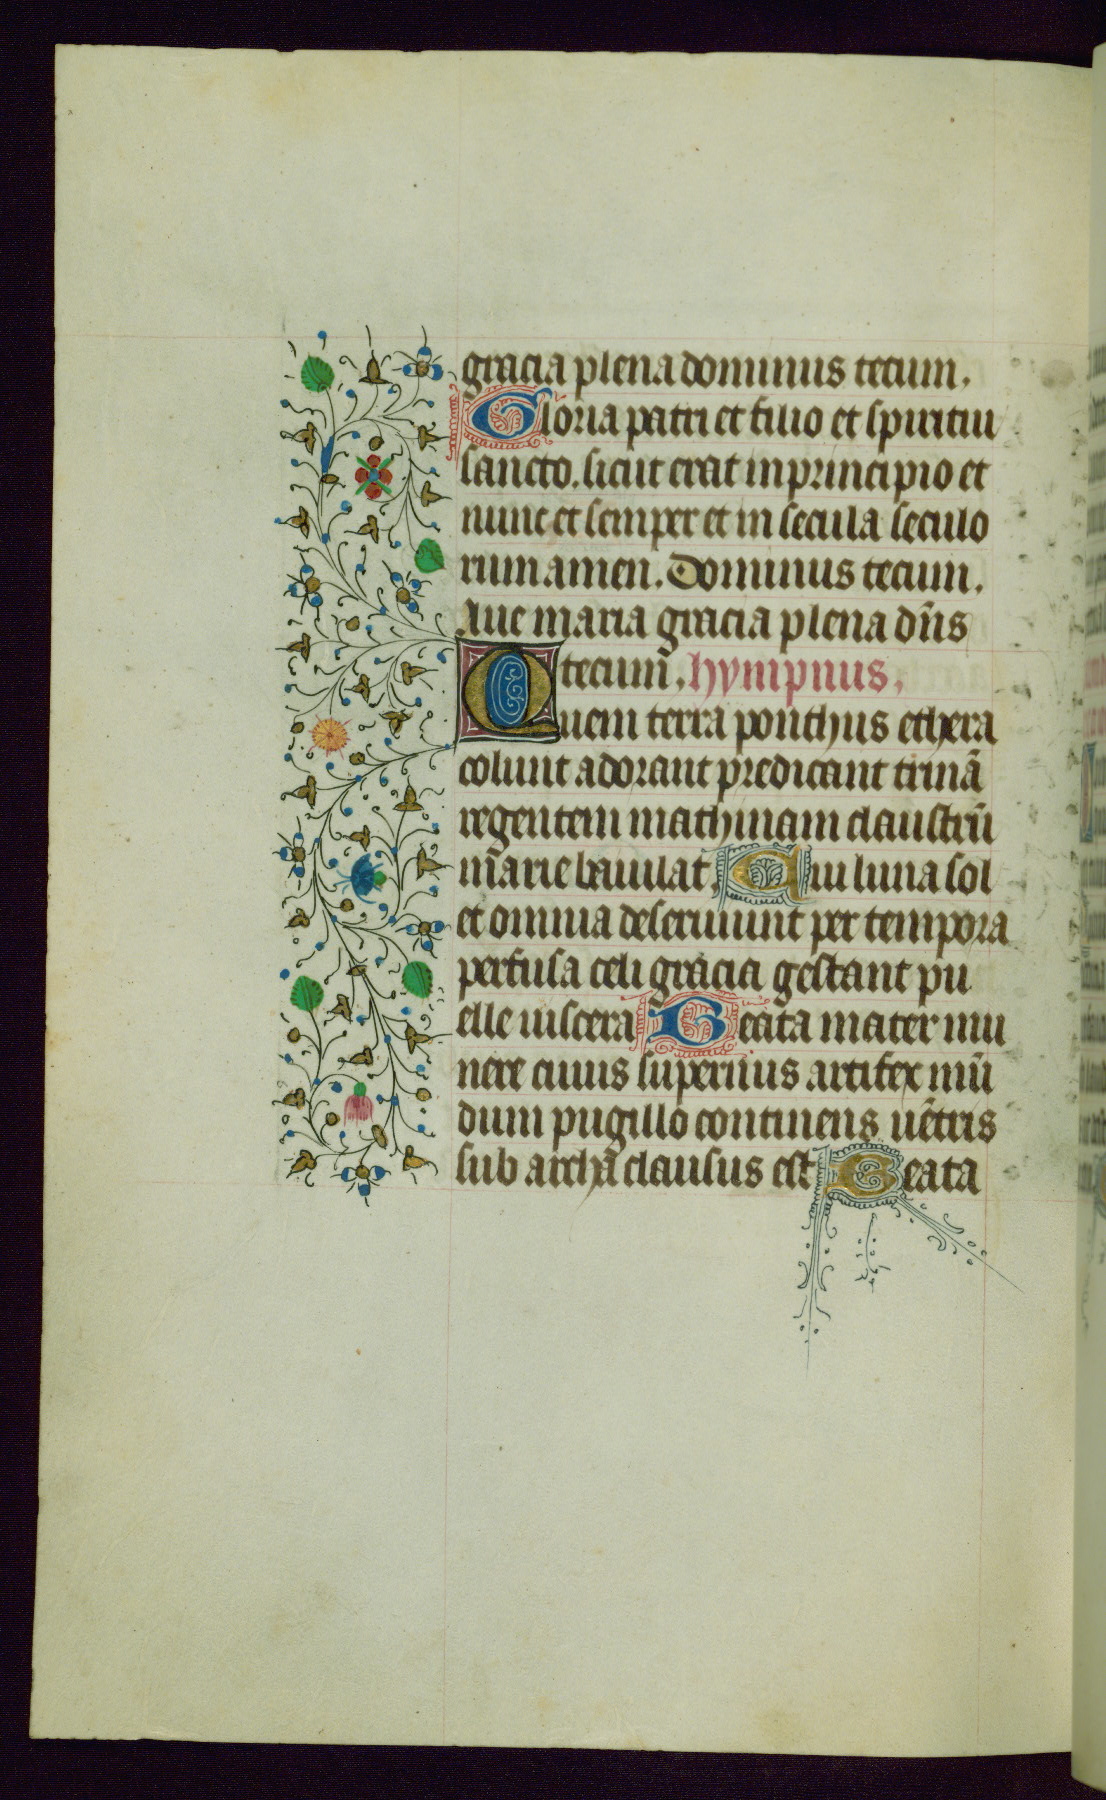 gracia plena dominus tecum.
Gloria patri et filio et spiritui
sancto. sicut erat in principio et
nunc et semper et in secula seculo
rum amen. Dominus tecum.
Aue maria gracia plena dn̄s
tecum̄. hympnus.
Quem terra ponthus ethera
colunt adorant predicant trinā
regentem machinam claustrū
m̄arie baiulat. Cui luna sol
et omnia deseruiunt per tempora
perfusa celi gracia gestant pu
elle uiscera Beata mater mu
nere cuius supernus artifex mū
dum pugillo continens uētris
sub archa clausus est Beata